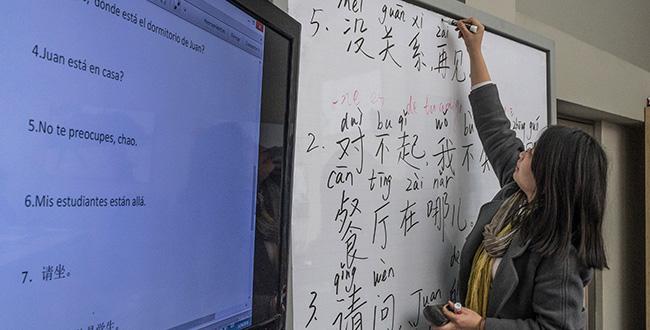 dónde está el dormitorio de Juan?
4.Juan está en casa?
5.No te preocupes, chao.
6.Mis estudiantes están allá.
7. 请坐。
méi guān xi zài
5. 没关系,再见
duì bu qǐ wǒ bù
2. 对不起,我不
cān tīng zài nǎr
餐厅在哪儿
qǐng wèn
3. 请问,Juan